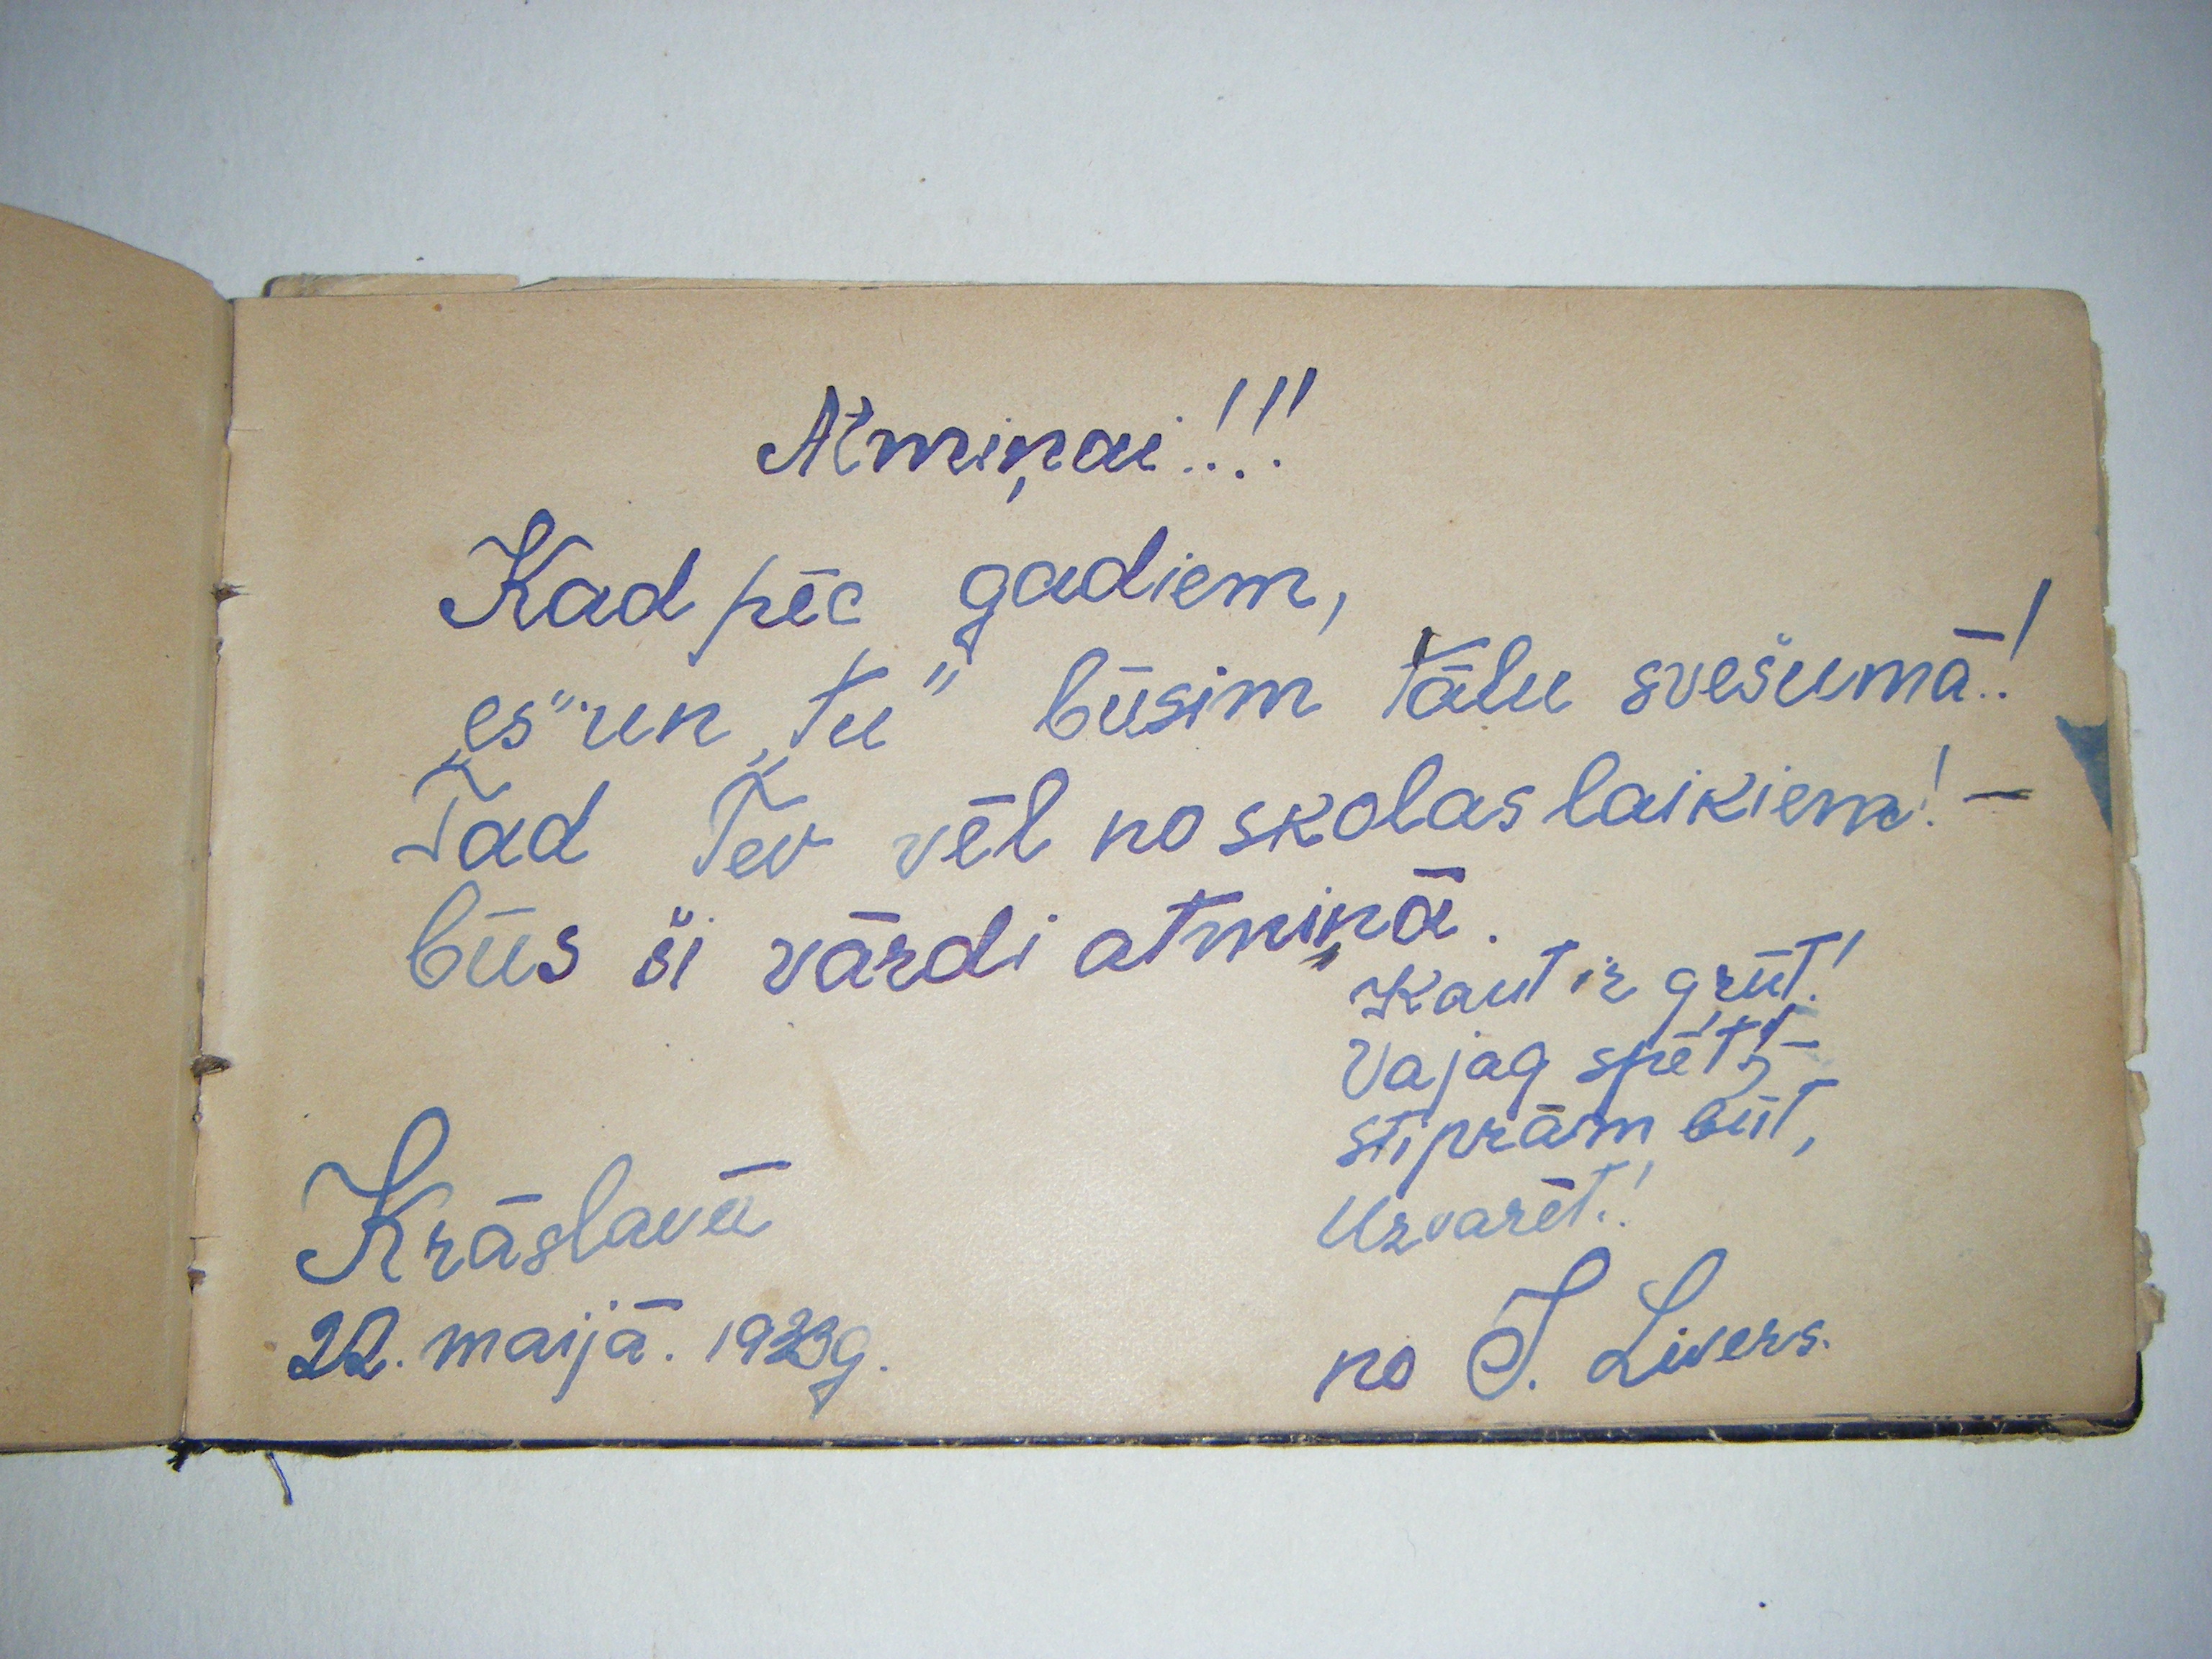 Atmiņai!!!
Kad pēc gadiem,
„es" un „tu" būsim tālu svešumā!
Tad Tev vēl no skolas laikiem! —
būs ši vārdi atmiņā.
Kaut ir grūt!
Vajag spēt, —
stiprām būt,
Uzvarēt!
Krāslavā
22. maijā. g.
no J. Livers.